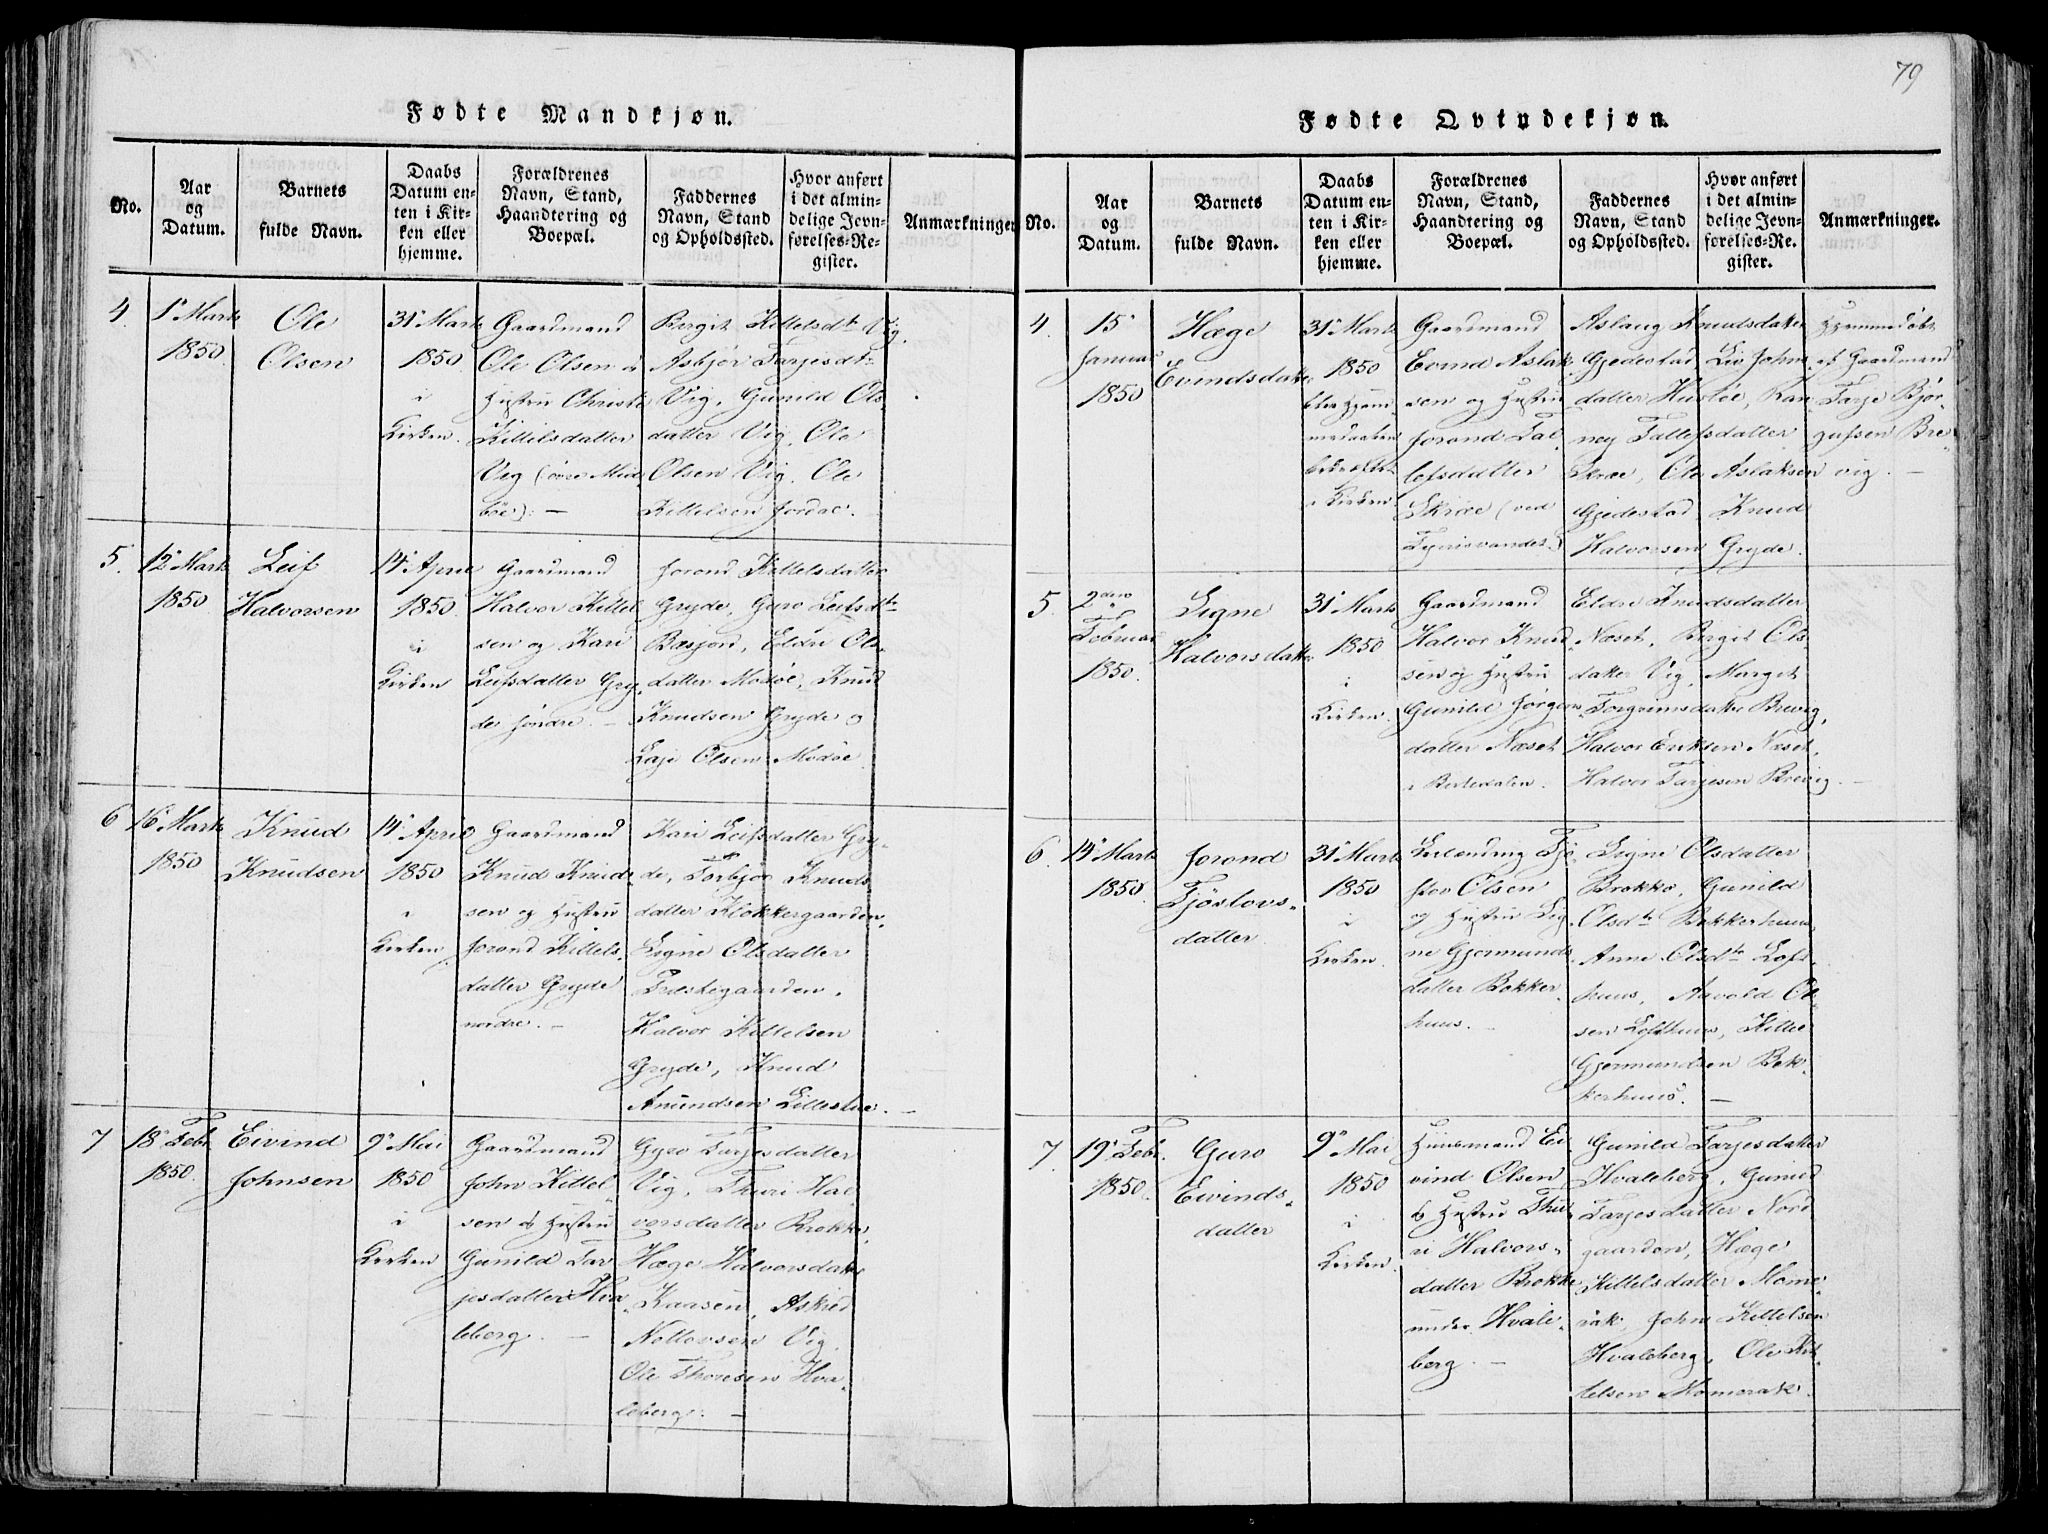 79
Fødte Mandkjøn.
No.
Aar
og
Datum.
Barnets
fulde Navn.
Daabs
Datum en-
ten i Kir-
ken eller
hjemme.
Forældrenes
Navn, Stand,
Haandtering og
Boepæl.
Faddernes
Navn, Stand
og Opholdssted.
Hvor anført
i det almin-
delige Jevn-
førelses-Re-
gister.
Anmærkninger
4.
1ste Marts
1850.
Ole
Olsen
31te Marts
1850
i
Kirken.
Gaardmand
Ole Olsen &
Hustru Christi
Kittilsdatter
Vig
Birgit Kittelsdtr Vig,
Asbjør Tarjesdt-
Vig, Gunild Ols-
datter Vig, Ole
Olsen Vig, Ole
Kittelsen Jordal.
5.
12te Marts
1850
Leif
Halvorsen
14de April
1850.
i
Kirken
Gaardmand
Halvor Kittel
sen og Kari
Leifsdatter Gry-
de søndre. —
Jorond Kittelsdatter
Gryde, Guro Leifsdtr
Bæsjord, Eldri Ols-
datter Modøe, Knud
Knudsen Gryde og
Olsen Modøe
6
16de Marts
1850
Knud
Knudsen
14de April
1850
i
Kirken
Gaardmand
Knud Knud-
sen og Hustru
Jorond Kittels-
datter Gryde
nordre. —
Kari Leifsdatter Gry-
de, Torbjør Knuds-
datter Klokkergaarden,
Signe Olsdatter
Præstegaarden,
Halvor Kittelsen
Gryde, Knud
Anundsen Lillestue. —
7
18de Febr.
1850.
Eivind
Johnsen
9de Mai
1850
i
Kirken
Gaardmand
John Kittel-
sen & Hustru
Gunild Tar
jesdatter Hva
leberg. —
Gyro Tarjesdatter
Vig, Thuri Hal
vorsdatter Brokke,
Hæge Halvorsdatter
Kaasen, Askild
Nottovsen Vig,
Ole Thoresen Hva-
leberg. —
Fødte Qvindekjøn.
No.
Aar
og
Datum.
Barnets
fulde Navn.
Daabs
Datum en-
ten i Kir-
ken eller
hjemme.
Forældrenes
Navn, Stand,
Haandtering og
Boepæl.
Faddernes
Navn, Stand
og Opholdssted.
Hvor anført
i det almin-
delige Jevn-
førelses-Re-
gister.
Anmærkninger.
4.
15de
Januar
1850
Hæge
Evindsdatter
31te Marts
1850
i Kirken
Gaardmand
Evind Aslak
sen og Hustru
Jorond Tal
lefsdatter
Skröe (ved
Aslaug Knudsdatter
Gjedestad, Liv Johns
datter Husløe, Ran
ney Tallefsdatter
Skröe, Ole Aslaksen
Gjedestad, Knud
Halvorsen Gryde.
Hjemmedøbt
af Gaardmand
Tarje Bjør-
gufsen Bre-
vig. —
5.
2den
Februar
1850.
Signe
Halvorsdatter
31te Marts
1850
i
Kirken.
Gaardmand
Halvor Knud
sen og Hustru
Gunild Jørgens-
datter Næset
Eldri Knudsdatter
Næset, Birgit Ols-
datter Vig, Margit
Torgrimsdatter Brevig,
Halvor Eriksen Næset,
Halvor Tarjesen Brevig. —
6.
14de Marts
1850.
Jorond
Tjöslovs-
datter
31te Marts
1850
i
Kirken.
Leilending Tjö-
slov Olsen
og Hustru Sig-
ne Gjermunds
datter Bokker-
huus. —
Signe Olsdatter
Brokke, Gunild
Olsdtr Bokkerhuus,
Anne Olsdtr Loft-
huus, Aavold Ol-
sen Lofthuus, Kittel
Gjermundsen Bok-
kerhuus. —
7.
19de Febr.
1850.
Guro
Eivinds-
datter
9de Mai
1850
i
Kirken.
Huusmand Ei
vind Olsen
& Hustru Thu-
ri Halvors-
datter Brokke
under Hvale-
berg. —
Gunild Tarjesdatter
Hvaleberg, Gunild
Tarjesdatter Nord
gaarden, Hæge
Kittelsdatter Mome
rak, John Kittelsen
Hvaleberg, Ole Kit-
telsen Momerak.